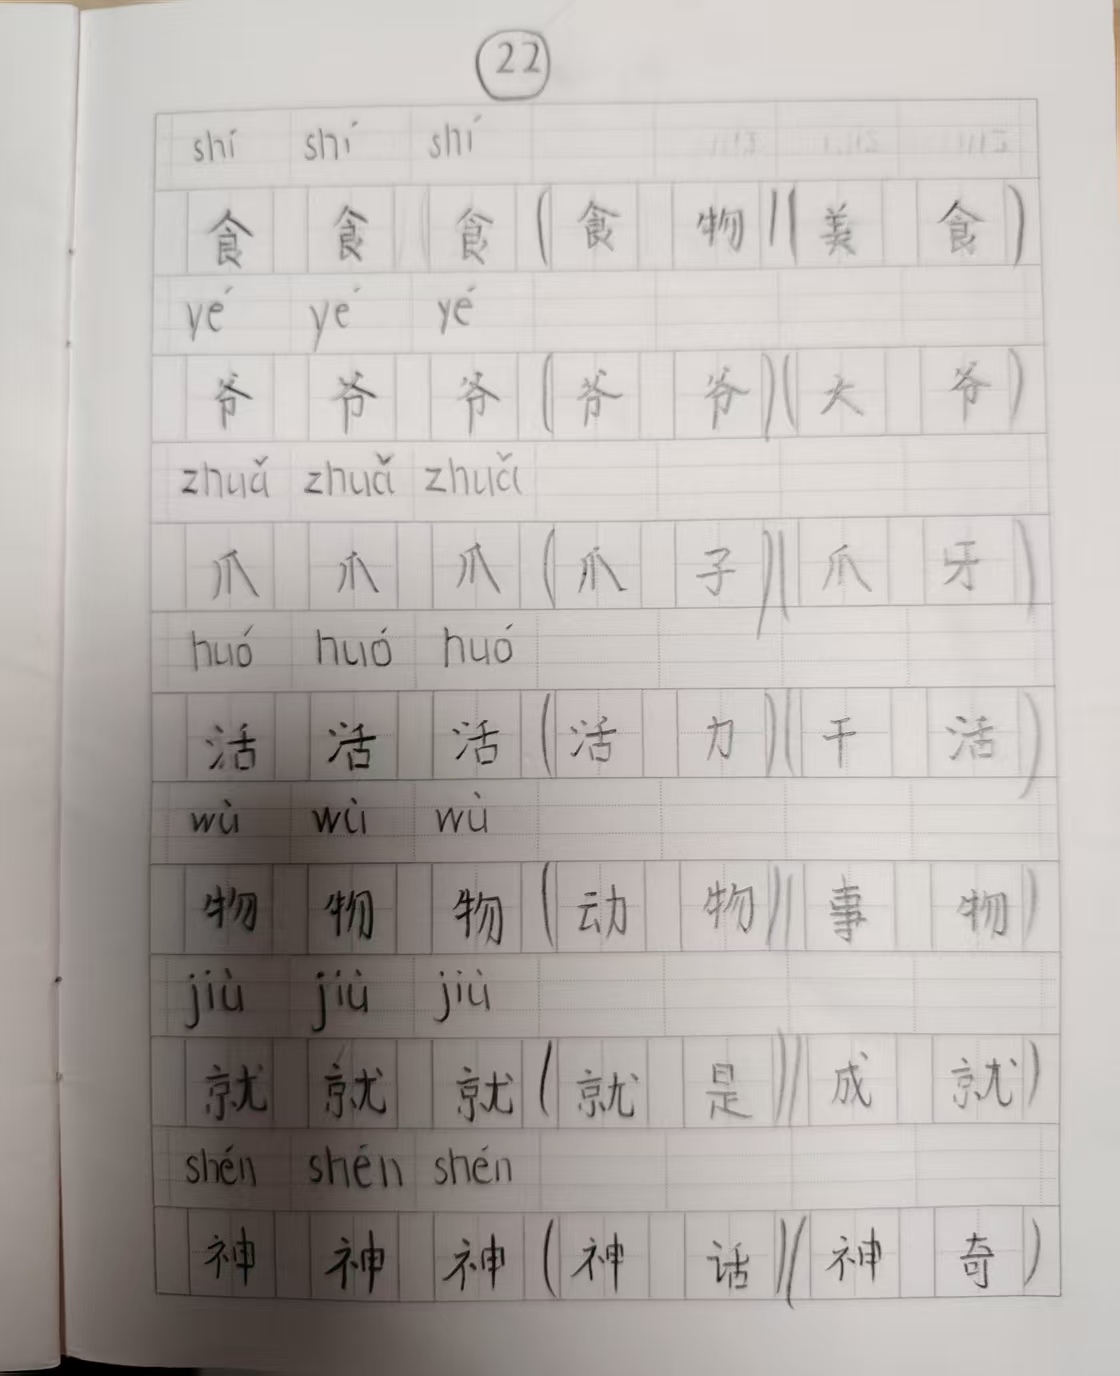 22
shí shí shí
食 食 食 (食 物)(美 食)
yé yé yé
爷 爷 爷 (爷 爷)(大 爷)
zhuǎ zhuǎ zhuǎ
爪 爪 爪 (爪 子)(爪 牙)
huó huó huó
活 活 活 (活 力)(干 活)
wù wù wù
物 物 物 (动 物)(事 物)
jiù jiù jiù
就 就 就 (就 是)(成 就)
shén shén shén
神 神 神 (神 话)(神 奇)